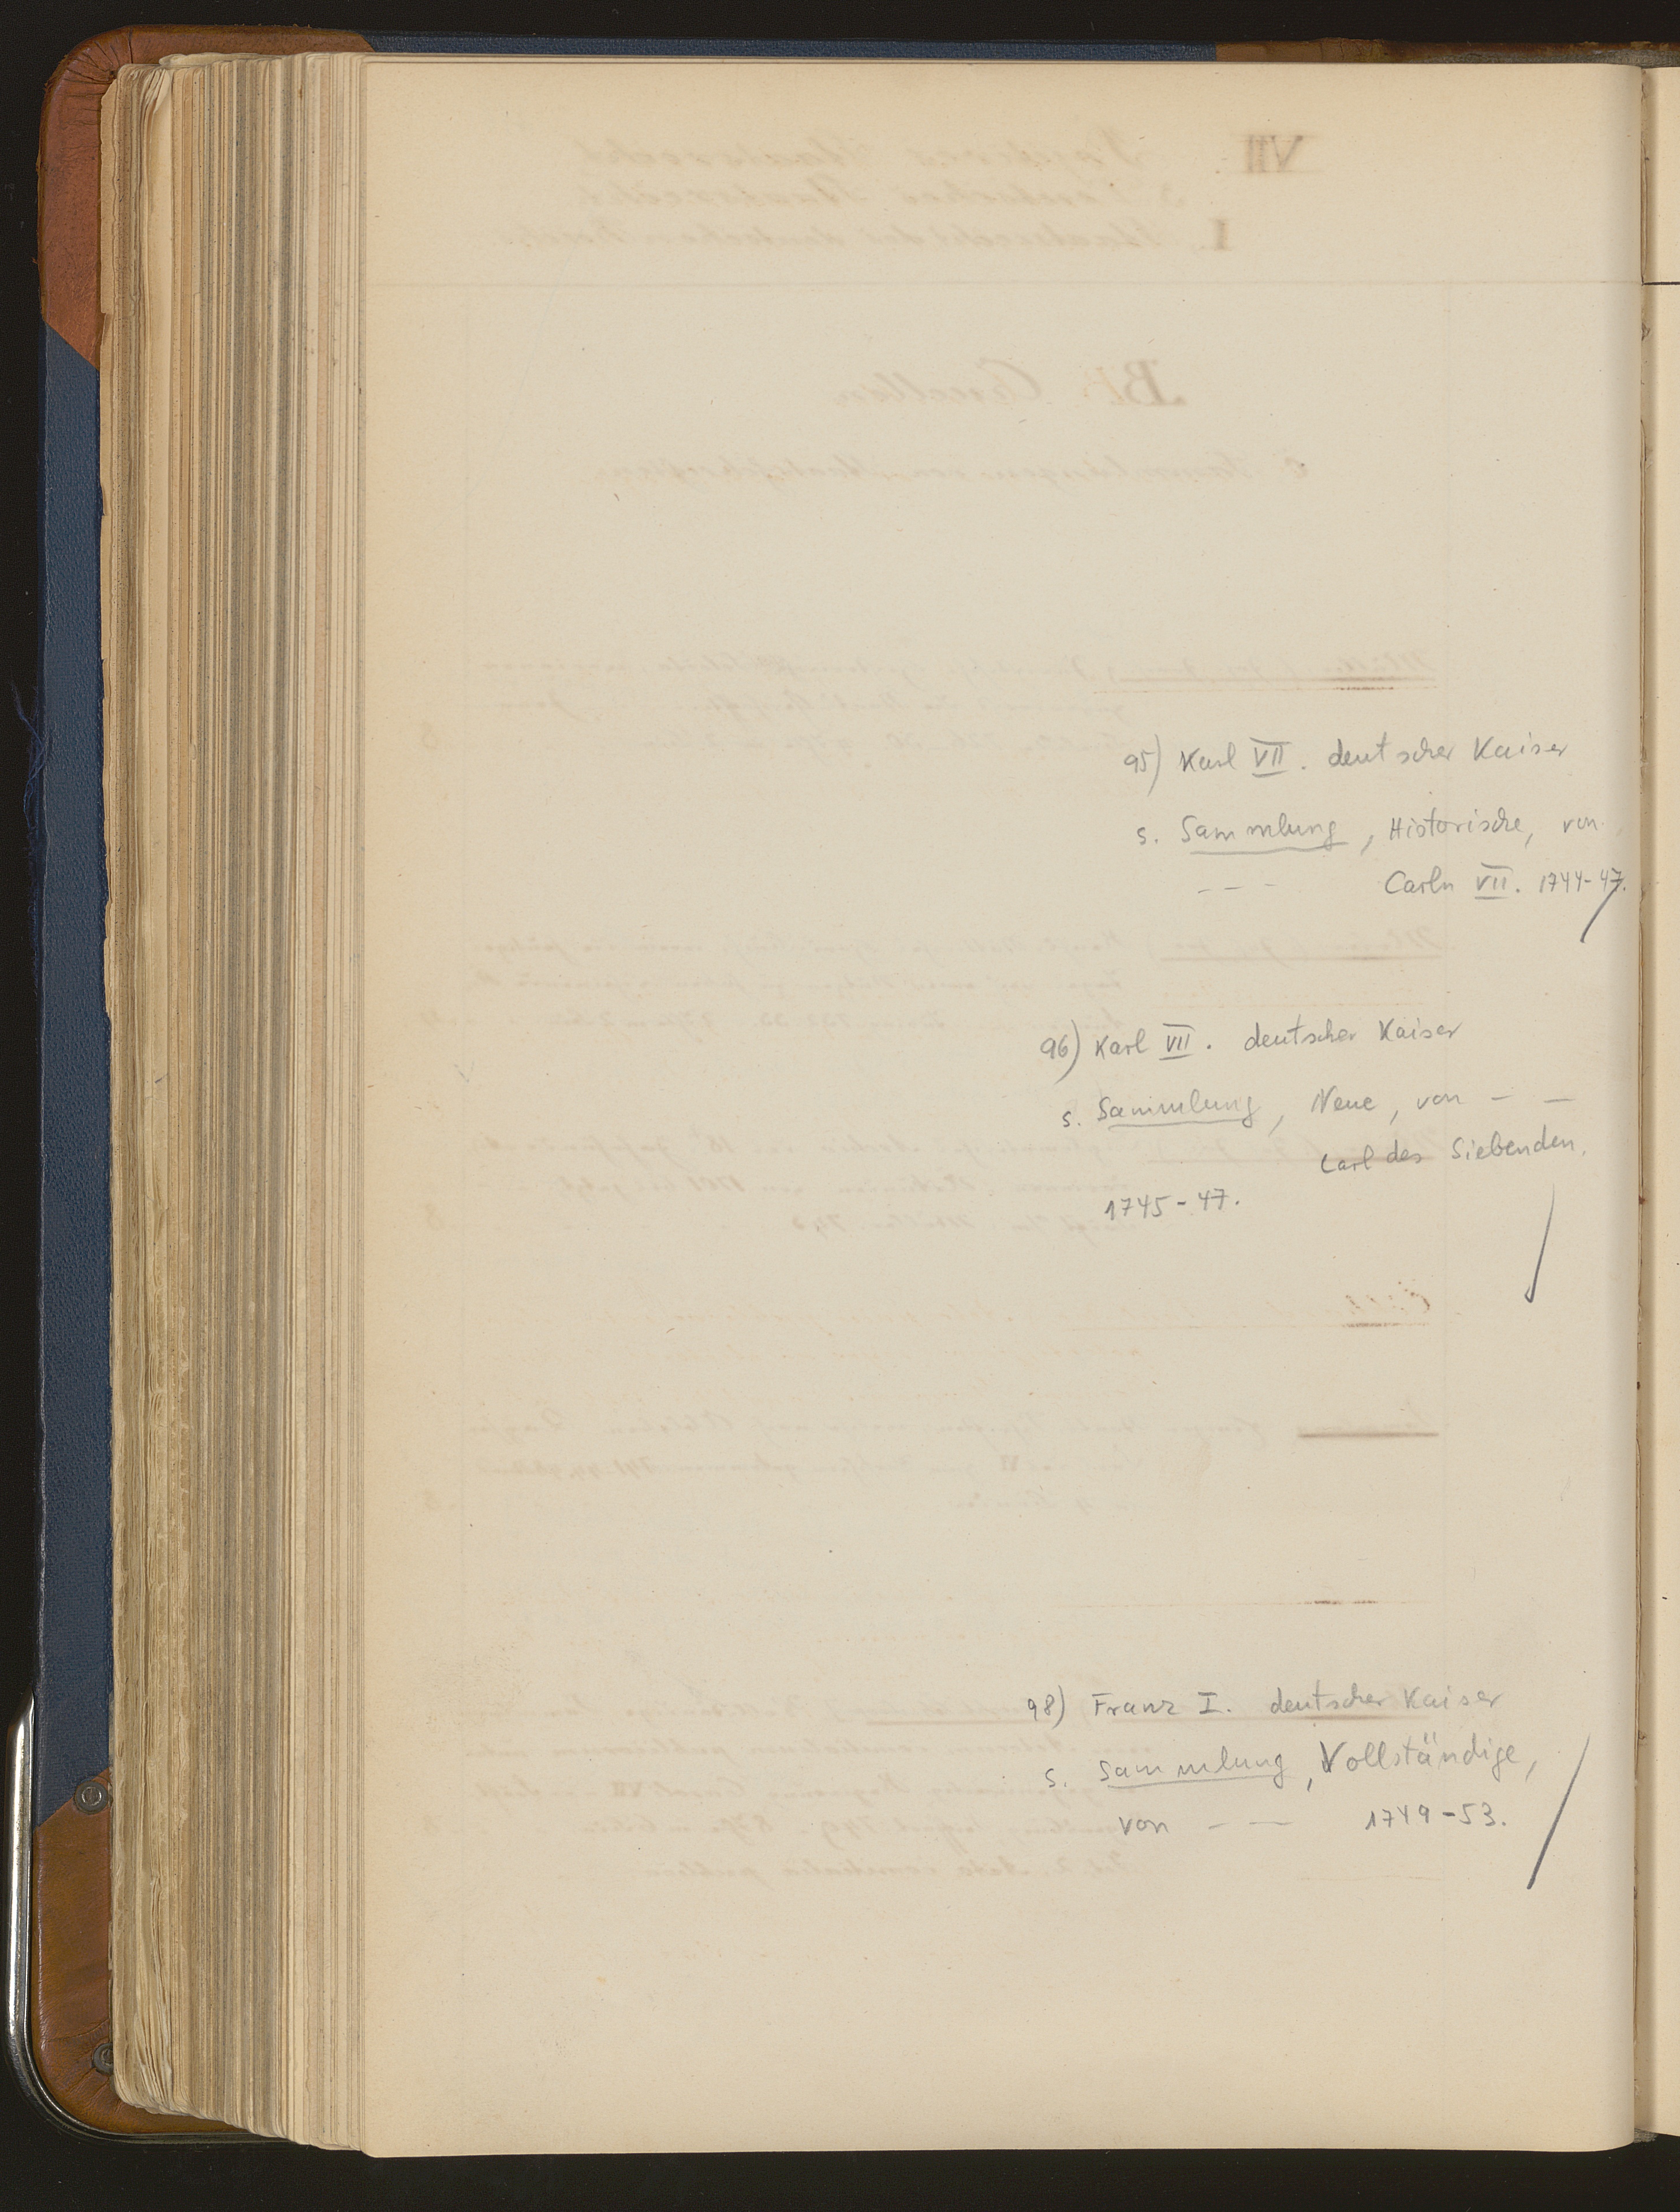 95) Karl VII. deutscher Kaiser
s. Sammlung, Historische, von
- - - Carln VII. 1744-47.
96) Karl VII. deutscher Kaiser
s. Sammlung, Neue, von - -
Carl des Siebenden.
1745-47.
98) Franz I. deutscher Kaiser
s. Sammlung, Vollständige,
von - - 1749-53.